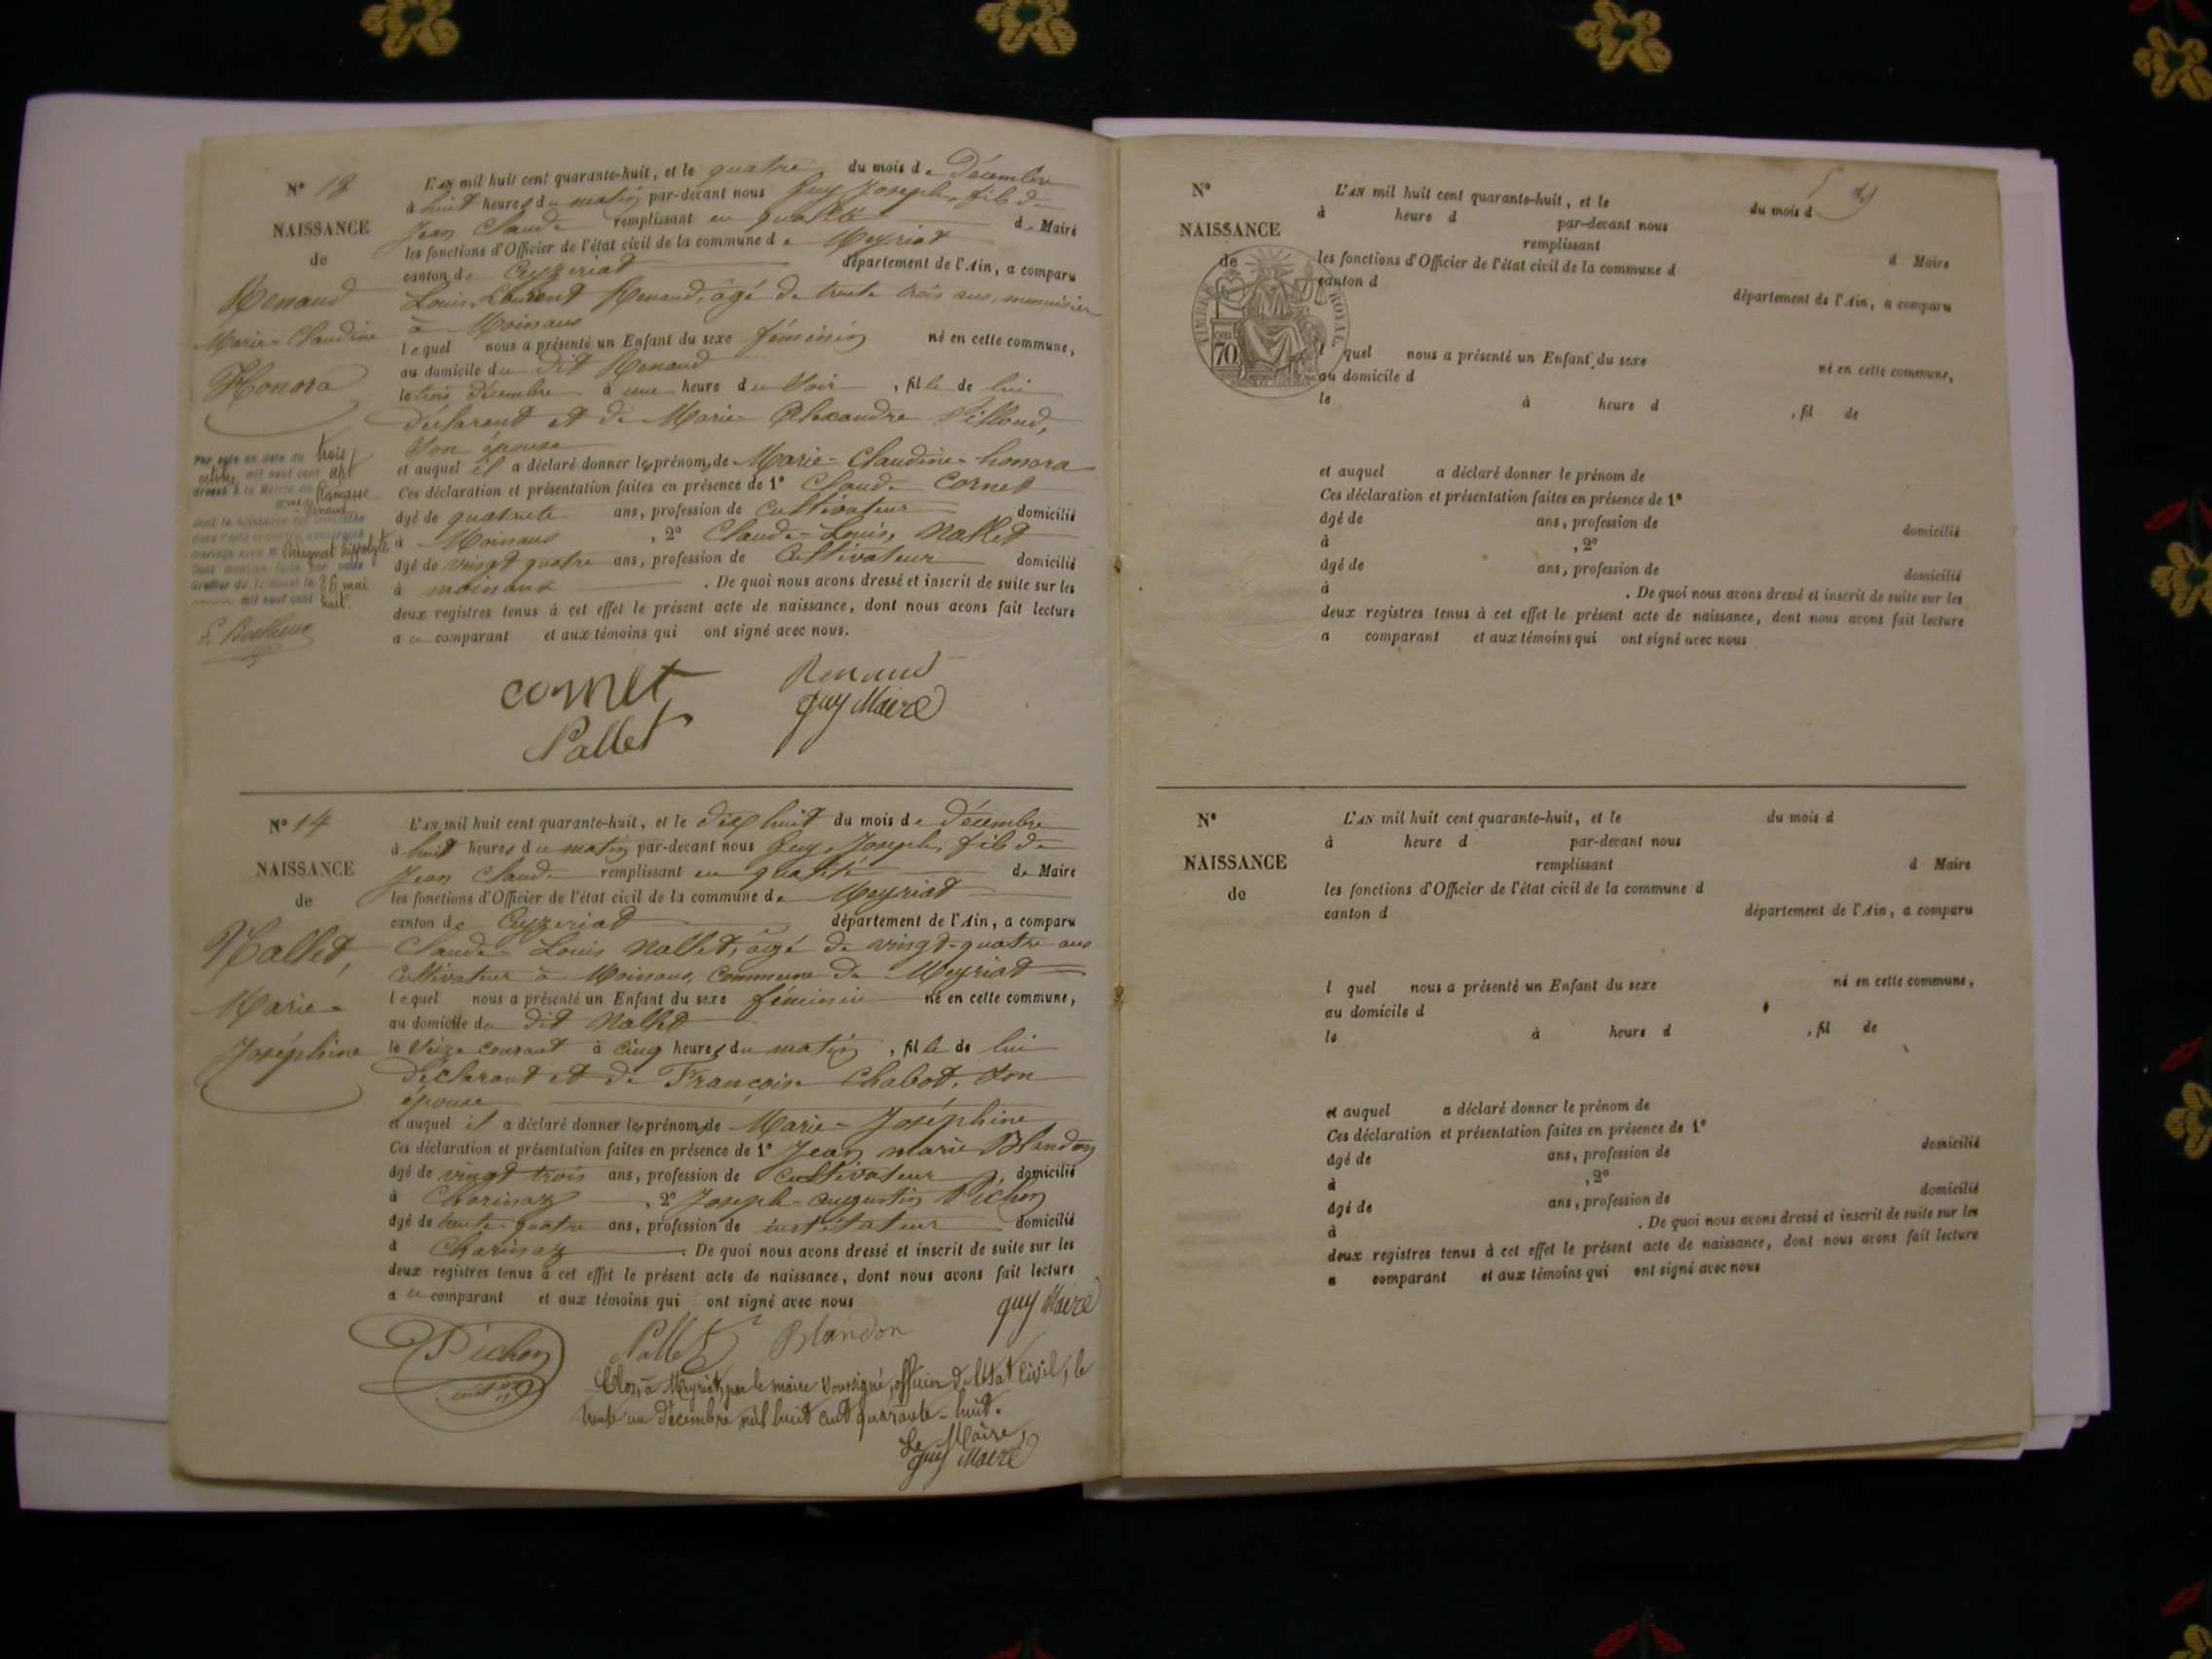 N° 13
NAISSANCE
de
Renaud
Marie-Claudine
Honora
Par acte en date du trois
octobre mil neuf cent sept
dressé à la Mairie de Ramasse
Renaud
dont la naissance est constatée
dans l'acte ci-contre, a contracté
mariage avec M. Perrignat hippolyte
Dont mention faite par nous
Greffier du Tribunal le 26 mai
mil neuf cent huit.
L'AN mil huit cent quarante-huit, et le quatre du mois de Décembre
à huit heures du matin par-devant nous Guy Joseph, fils de
Jean Claude remplissant en qualité de Maire
les fonctions d'Officier de l'état civil de la commune de Meyriat
canton de Ceyzeriat département de l'Ain, a comparu
Louis-Laurent Renaud, âgé de trente trois ans, menuisier
à Moinans
lequel nous a présenté un Enfant du sexe féminin né en cette commune,
au domicile du dit Renaud
le trois décembre à une heure du Soir, fille de lui
déclarant et de Marie Alexandre Pilloud,
Son épouse
et auquel il a déclaré donner les prénoms de Marie-Claudine-honora
Ces déclaration et présentation faites en présence de 1° Claude Cornet
âgé de quarante ans, profession de Cultivateur domicilié
à Moinans, 2° Claude-Louis, Nallet
âgé de vingt quatre ans, profession de Cultivateur domicilié
à moinans. De quoi nous avons dressé et inscrit de suite sur les
deux registres tenus à cet effet le présent acte de naissance, dont nous avons fait lecture
a ce comparant et aux témoins qui ont signé avec nous.
cornet Renaud
Nallet guy Maire
N° 14
NAISSANCE
de
Nallet,
Marie-
Joséphine
L'AN mil huit cent quarante-huit, et le dix huit du mois de décembre
à huit heures du matin par-devant nous Guy, Joseph, fils de
Jean Claude remplissant en qualité de Maire
les fonctions d'Officier de l'état civil de la commune de Meyriat
canton de Ceyzeriat département de l'Ain, a comparu
Claude Louis Nallet, âgé de vingt-quatre ans
Cultivateur à Moinans, commune de Meyriat
lequel nous a présenté un Enfant du sexe féminin né en cette commune,
au domicile du dit Nallet
le Seize courant à cinq heures du matin, fille de lui
déclarant et de Françoise Chabot, son
épouse
et auquel il a déclaré donner les prénoms de Marie-Joséphine
Ces déclaration et présentation faites en présence de 1° Jean marie Blandon
âgé de vingt trois ans, profession de Cultivateur domicilié
à Charinaz, 2° Joseph-augustin Pichon
âgé de trente-quatre ans, profession de instituteur domicilié
à Charinaz. De quoi nous avons dressé et inscrit de suite sur les
deux registres tenus à cet effet le présent acte de naissance, dont nous avons fait lecture
a ce comparant et aux témoins qui ont signé avec nous
guy Maire
Pichon Nallet Blandon
Clos, à Meyriat, par le maire soussigné, officier de l'état civil, le
trente un décembre mil huit cent quarante-huit.
Le Maire,
guy Maire
N°
NAISSANCE
de
TIMBRE ROYAL
70
L'AN mil huit cent quarante-huit, et le du mois d
à heure d par-devant nous
remplissant d Maire
les fonctions d'Officier de l'état civil de la commune d
canton d département de l'Ain, a comparu
l quel nous a présenté un Enfant du sexe né en cette commune,
au domicile d
le à heure d , fil de
et auquel a déclaré donner le prénom de
Ces déclaration et présentation faites en présence de 1°
âgé de ans, profession de domicilié
à , 2°
âgé de ans, profession de domicilié
à . De quoi nous avons dressé et inscrit de suite sur les
deux registres tenus à cet effet le présent acte de naissance, dont nous avons fait lecture
a comparant et aux témoins qui ont signé avec nous
N°
NAISSANCE
de
L'AN mil huit cent quarante-huit, et le du mois d
à heure d par-devant nous
remplissant d Maire
les fonctions d'Officier de l'état civil de la commune d
canton d département de l'Ain, a comparu
l quel nous a présenté un Enfant du sexe né en cette commune,
au domicile d
le à heure d , fil de
et auquel a déclaré donner le prénom de
Ces déclaration et présentation faites en présence de 1°
âgé de ans, profession de domicilié
à , 2°
âgé de ans, profession de domicilié
à . De quoi nous avons dressé et inscrit de suite sur les
deux registres tenus à cet effet le présent acte de naissance, dont nous avons fait lecture
a comparant et aux témoins qui ont signé avec nous